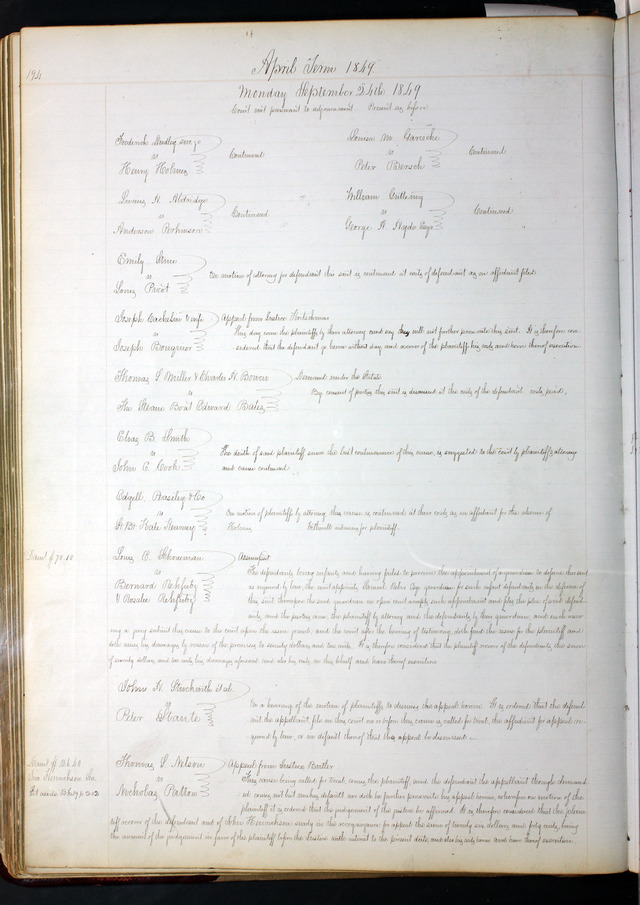 194
April Term 1849
Monday September 24th 1849
Court met pursuant to adjournment Present as before
vs Continued
Henry Holmes
Louisa M.
vs Continued
Peter
H. Aldridge
vs Continued
Anderson Robinson
William
vs Continued
George H. Hyde
Emily
vs On motion of attorney for defendant this suit is continued at costs of defendant as on affidavit filed
Louis Picot
Joseph & wife Appeal from Justice
vs This day come the plaintiffs by their attorney and say they will not further prosecute this suit. It is therefore con
Joseph sidered that the defendant go hence without day and recover of the plaintiffs his costs and have thereof execution
Thomas S. Miller & Charles H. Bower Demand under the Statute
vs By consent of parties this suit is dismissed at the costs of the defendant costs paid.
The Steam Boat Edward Bates
Elias B. Smith
vs The death of said plaintiff since the last continuance of this cause, is suggested to the court by plaintiff's attorney
John C. Cook and cause continued
Edgell, & Co
vs On motion of plaintiffs by attorney this cause is continued at their costs as on affidavit for the absence of
Holmes witness for plaintiff.
Daml $70.10
Louis C. Assumpsit
vs The defendants being infants and having failed to procure the appointment of a guardian to defend this suit
Bernard as required by law, the court appoints Esqr guardian to such infant defendants in the defence of
& Rosalie this suit thereupon the said guardian in open court accepts such appointment and files the plea of said defend-
ants, and the parties come, the plaintiff by attorney and the defendants by their guardian, and each waiv
ing a jury submit this cause to the court upon the issue joined, and the court after the hearing of testimony doth find the issue for the plaintiff and
doth assess his damages by reason of the premises to seventy dollars and ten cents. It is therefore considered that the plaintiff recover of the defendants the sum
of seventy dollars and ten cents his damages aforesaid and also his costs in this behalf and have thereof execution
John H. et al.
vs On a hearing of the motion of plaintiffs to dismiss the appeal herein It is ordered that the defend
Peter ant the appellant file in this court on or before this cause is called for trial, the affidavit for appeal re-
quired by law, or in default thereof that this appeal be dismissed
Thomas S. Nelson Appeal from Justice Butler
vs This cause being called for trial, comes the plaintiff, and the defendant the appellant though demand
Nicholas Patton ed comes not but makes default nor doth he further prosecute his appeal herein, wherefore on motion of the
plaintiff it is ordered that the judgment of the justice be affirmed. It is therefore considered that the plain
tiff recover of the defendant and of John security in the recognizance for appeal the sum of twenty six dollars and forty cents, being
the amount of the judgment in favor of the plaintiff before the Justice with interest to the present date, and also his costs herein and have thereof execution